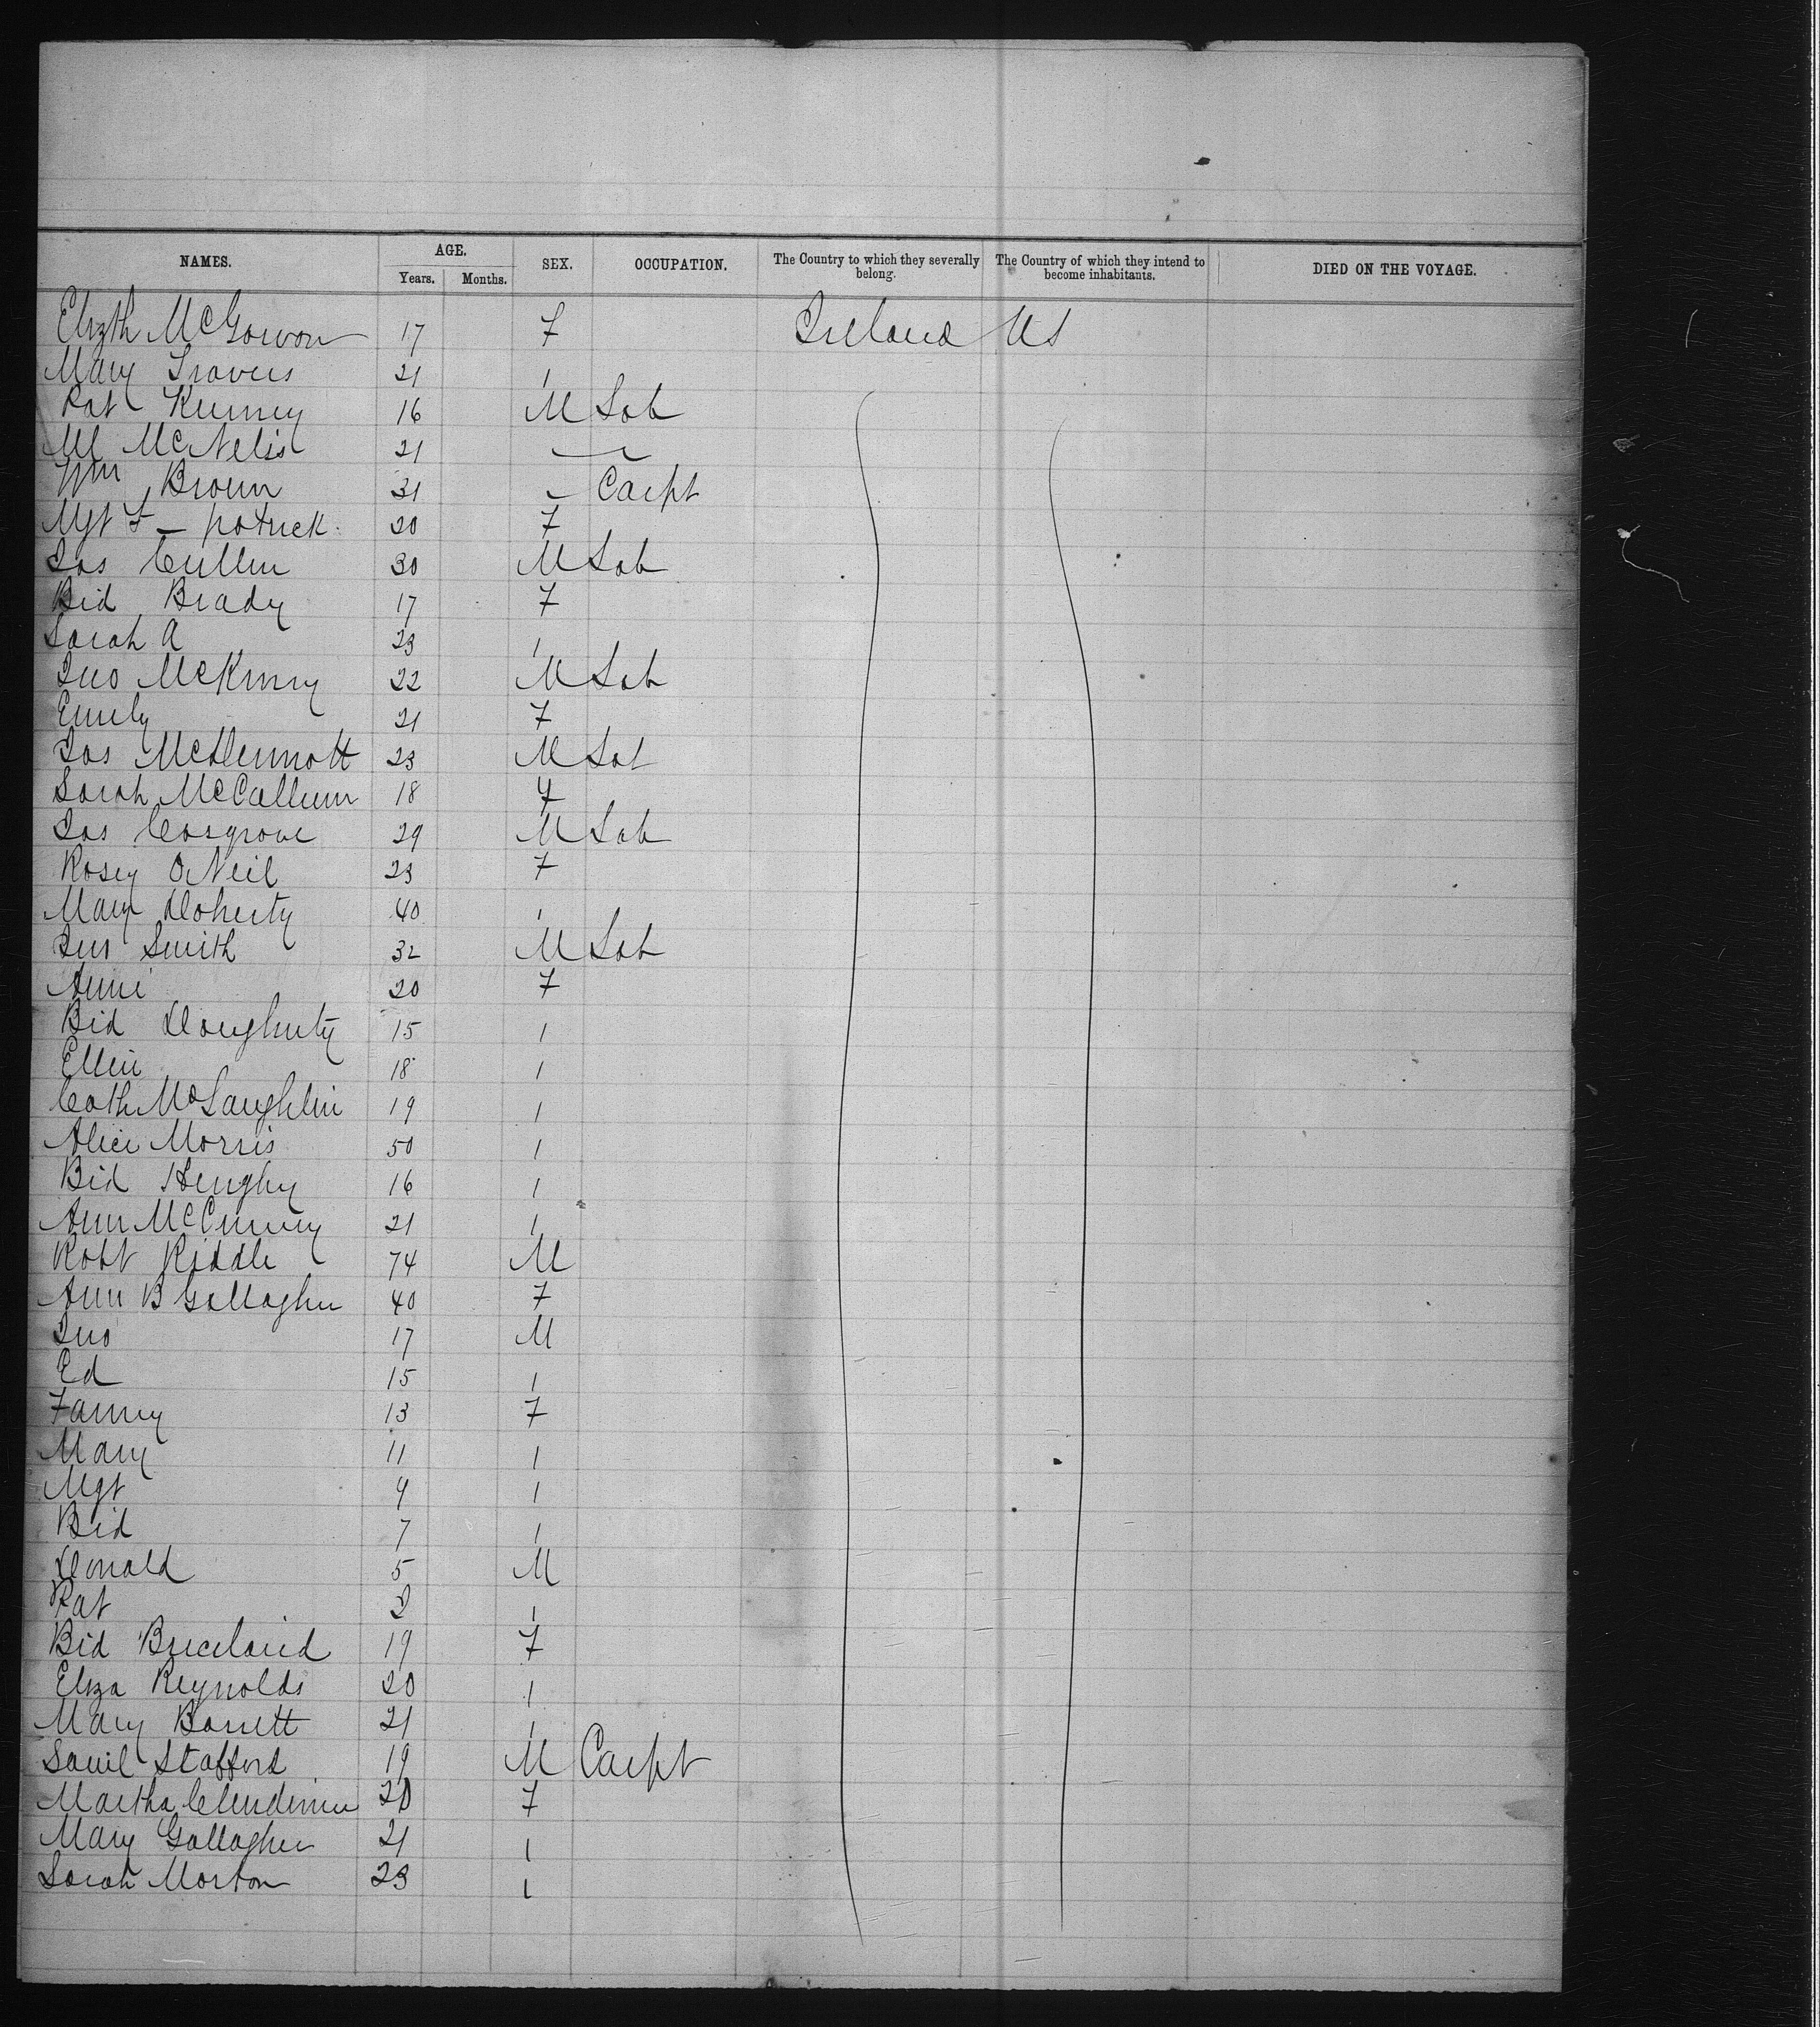 NAMES. AGE. SEX. OCCUPATION. The Country to which they severally belong. The Country of which they intend to become inhabitants. DIED ON THE VOYAGE.
Years. Months.
Elizth McGowon 17 F Ireland US
Mary Travers 21 1
Pat Kenney 16 M Lab
Ml McNelis 21
Wm Brown 31 Carpt
Mgt F - patrick 20 F
Jas Cullen 30 M Lab
Bid Brady 17 F
Sarah A 23 1
Jno McKinny 22 M Lab
Emily 21 F
Jas McDermott 23 M Lab
Sarah McCallum 18 F
Jas Cosgrove 29 M Lab
Rosey ONeil 23 F
Mary Doherty 40 1
Jno Smith 32 M Lab
Anni 20 F
Bid Dougherty 15 1
Ellen 18 1
Cath McLaughlin 19 1
Alice Morris 50 1
Bid 16 1
Ann 21 1
Robt Riddle 74 M
Ann B Gallagher 40 F
Jno 17 M
Ed 15 1
Fanny 13 F
Mary 11 1
Mgt 9 1
Bid 7 1
Donald 5 M
Pat 2 1
Bid Breeland 19 F
Eliza Reynolds 20 1
Mary Barrett 21 1
Saml Stafford 19 M Carpt
Martha Clendinin 20 F
Mary Gallagher 21 1
Sarah Morton 23 1